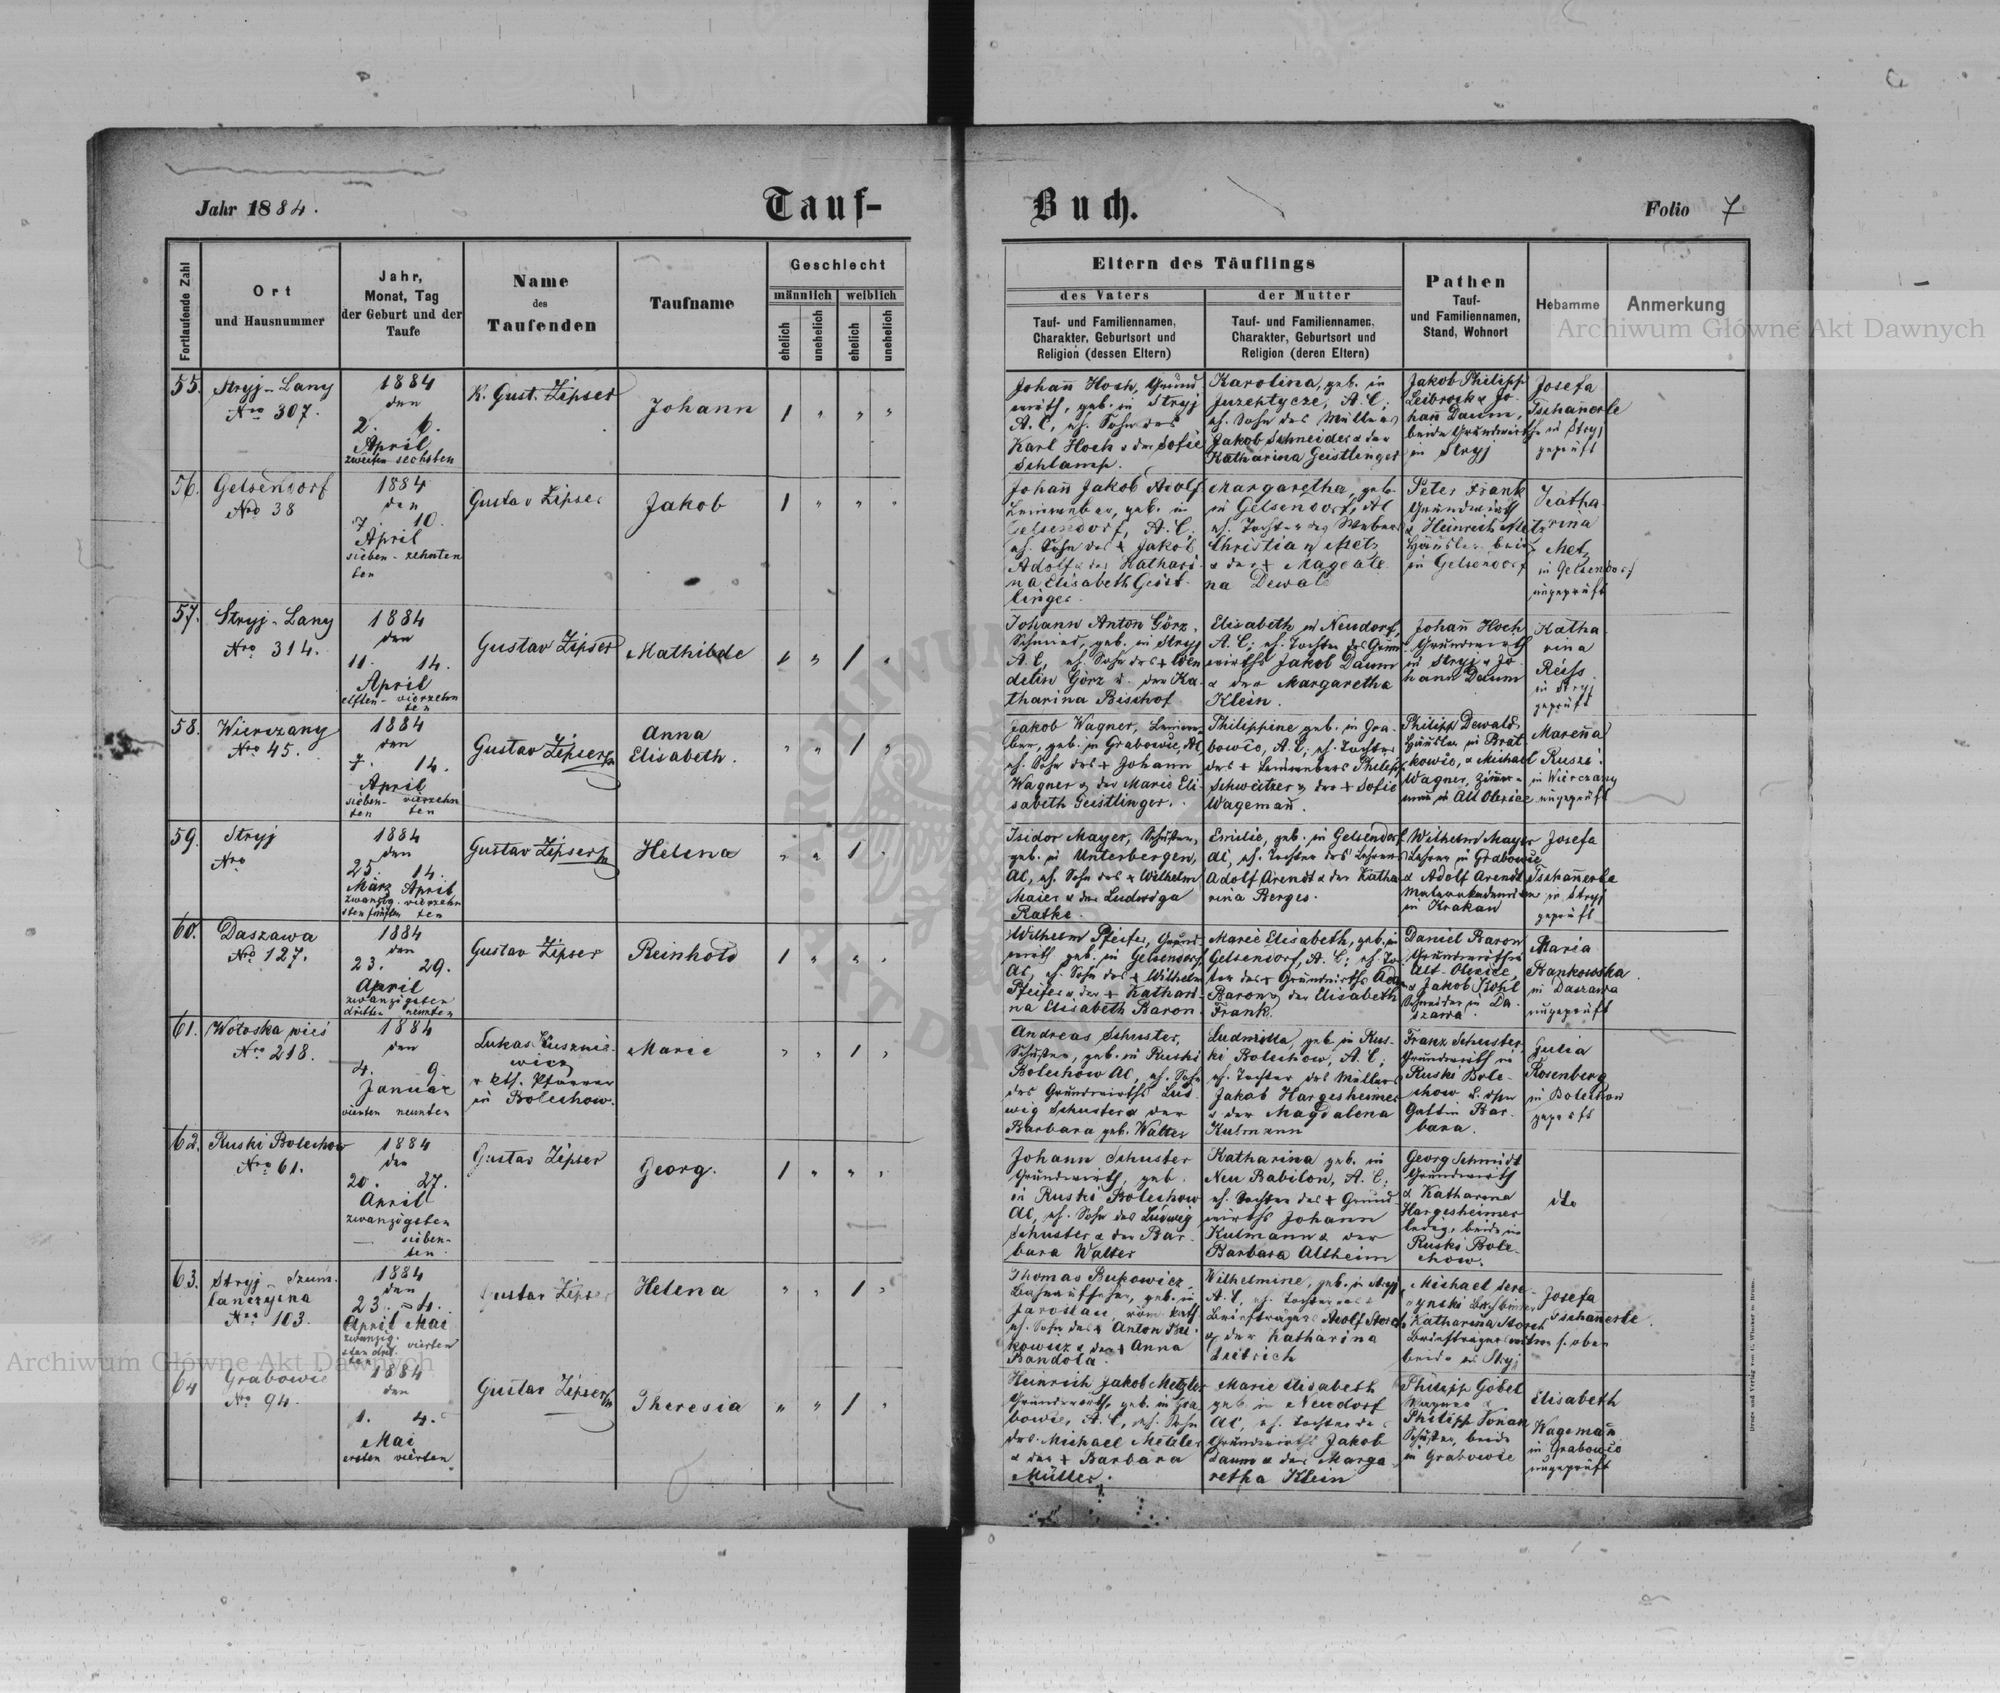 Jahr 1884.
Tauf-
Buch.
Folio 7
Fortlaufende Zahl
Ort
und Hausnummer
Jahr,
Monat, Tag
der Geburt und der
Taufe
Name
des
Taufenden
Taufname
Geschlecht
männlich
weiblich
ehelich
unehelich
ehelich
unehelich
Eltern des Täuflings
des Vaters
der Mutter
Tauf- und Familiennamen,
Charakter, Geburtsort und
Religion (dessen Eltern)
Tauf- und Familiennamen,
Charakter, Geburtsort und
Religion (deren Eltern)
Pathen
Tauf-
und Familiennamen,
Stand, Wohnort
Hebamme
Anmerkung
Archiwum Główne Akt Dawnych
55.
Stryj-Lany
Nro 307.
1884
den
2. 6.
April
zweiten sechsten
K. Gust. Zipser
Johann
Johañ Hoch, Grund
wirth, geb. in Stryj
A.C, eh. Sohn des
Karl Hoch u der Sofie
Schlamp.
Karolina, geb. in
Juzeptycze, A.C.;
eh. Sohn des Müllers
Jakob Schneider u der
Katharina Geistlinger
Jakob Philipp
Leibrock u Jo-
hañ Daum,
beide Grundwirthe
in Stryj
Josefa
Tschañerle
in Stryj
geprüft
56.
Gelsendorf
Nro 38
1884
den
7. 10.
April
sieben- zehnten
ten
Gustav Zipser
Jakob
Johañ Jakob Adolf
geb. in
Gelsendorf, A.C.;
eh. Sohn des + Jakob
Adolf u der Kathari-
na Elisabeth Geist-
linger.
Margaretha, geb.
in Gelsendorf, AC
eh. Tochter des Webers
Christian Metz
u der + Magdale
na Dewald
Peter Frank
Grundwirth
u Heinrich Metz
Häusler beide
in Gelsendorf
Katha-
rina
Metz
in Gelsendorf
ungeprüft
57.
Stryj-Lany
Nro 314.
1884
den
11. 14.
April
elften- vierzehn
ten
Gustav Zipser
Mathilde
Johann Anton Görz,
Schmied, geb. in Stryj
A.C, eh. Sohn des + Wen
delin Görz u. der Ka-
tharina Bischof
Elisabeth in Neudorf,
A.C; eh. Tochter des Grund
wirths Jakob Daum
u der Margaretha
Klein.
Johañ Hoch
Grundwirth
in Stryj u Jo-
hann Daum
Katha
rina
Reiss
in Stryj
geprüft
58.
Wierczany
Nro 45.
1884
den
7. 14.
April
sieben- vierzehn
ten ten
Gustav Zipser
Anna
Elisabeth.
Jakob Wagner,
geb. in Grabowce, AC
eh. Sohn des + Johann
Wagner u der Marie Eli-
sabeth Geistlinger.
Philippine geb. in Gra-
bowce, A.C; eh. Tochter
des + Philipp
Schweitzer u der + Sofie
Wagemañ.
Philipp Dewald
Häusler in Brat-
kowce, u Michael
Wagner,
in Alt Oleksice
Mareña
in Wierczany
ungeprüft
59.
Stryj
Nro
1884
den
25. 14.
März April
zwanzig- vierzehn
sten fünften ten
Gustav Zipser
Helena
Isidor Mayer, Schuster,
geb. in Unterbergen,
AC, eh. Sohn des + Wilhelm
Maier u der Ludwiga
Rathe.
Emilie, geb. in Gelsendorf
AC, eh. Tochter des Lehrers
Adolf Arendt u der Katha
rina Berges.
Wilhelm Mayer
Lehrer in Grabowce
u Adolf Arendt
in Krakau
Josefa
Tschañerle
in Stryj
geprüft
60.
Daszawa
Nro 127.
1884
den
23. 29.
April
zwanzigsten
dritten neunten
Gustav Zipser
Reinhold
Wilhelm Pfeifer, Grund-
wirth geb. in Gelsendorf
AC, eh. Sohn des + Wilhelm
Pfeifer u der + Kathari-
na Elisabeth Baron
Marie Elisabeth, geb. in
Gelsendorf, A.C; eh. Toch
ter des + Grundwirths Adam
Baron u der Elisabeth
Frank.
Daniel Baron
Grundwirth in
Alt-Oleksice,
u Jakob Kohl
Schneider in Da-
szawa.
Maria
Bankowska
in Daszawa
ungeprüft
61.
Wołoska wieś
Nro 218.
1884
den
4. 9.
Januar
vierten neunten
Lukas
wicz
r. kth. Pfarrer
in Bolechow.
Marie
Andreas Schuster,
Schuster, geb. in Ruski
Bolechow AC, eh. Sohn
des Grundwirths Lud
wig Schuster u der
Barbara geb. Walter
Ludmilla, geb in Rus-
ki Bolechow, A.C;
eh. Tochter des Müllers
Jakob Hargesheimer
u der Magdalena
Kulmann
Franz Schuster
Grundwirth in
Ruski Bole-
chow u. dssn
Gattin Bar-
bara.
Julia
Rosenberg
in Bolechow
geprüft
62.
Ruski Bolechow
Nro 61.
1884
den
20. 27.
April
zwanzigsten
sieben-
ten
Gustav Zipser
Georg.
Johann Schuster
Grundwirth, geb.
in Ruski Bolechow
AC, eh. Sohn des Ludwig
Schuster u der Bar-
bara Walter
Katharina geb. in
Neu Babilon, A.C;
eh. Tochter des + Grund
wirths Johann
Kulmann u der
Barbara Altheim
Georg Schmidt
Grundwirth
u Katharina
Hargesheimer
ledig, beide in
Ruski Bole-
chow.
dto
63.
Stryj-Szum-
lanczyzna
Nro 103.
1884
den
23. 4.
April Mai
zwanzig- vierten
sten drit-
ten
Gustav Zipser
Helena
Thomas Bukowicz,
geb. in
Jaroslau, röm. kath
eh. Sohn des + Anton Bu-
kowicz u der + Anna
Bandola.
Wilhelmine, geb. in Stryj
A.C, eh. Tochter des
Briefträgers Adolf Storch
u der Katharina
Dietrich
Michael
u Katharina Storch
Briefträgers
beide in Stryj
Josefa
Tschañerle.
s. oben
64
Grabowce
Nro 94.
1884
den
1. 4.
Mai
ersten vierten
Gustav Zipser
Theresia
Heinrich Jakob Metzler
Grundwirth, geb. in Gra
bowce, A.C, eh. Sohn
des Michael Metzler
u der + Barbara
Müller.
Marie Elisabeth
geb in Neudorf
AC, eh. Tochter des
Grundwirths Jakob
Daum u der Marga
retha Klein
Philipp Göbel
Wagner u
Philipp
Schuster, beide
in Grabowce
Elisabeth
Wagemañ
in Grabowce
ungeprüft
Archiwum Główne Akt Dawnych